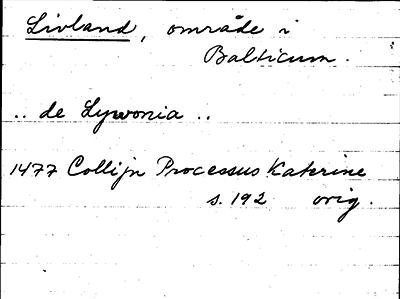 Livland, område i
Balticum.
.. de Lyvonia ..
1477 Collijn Processus Katerine
s. 192 orig.